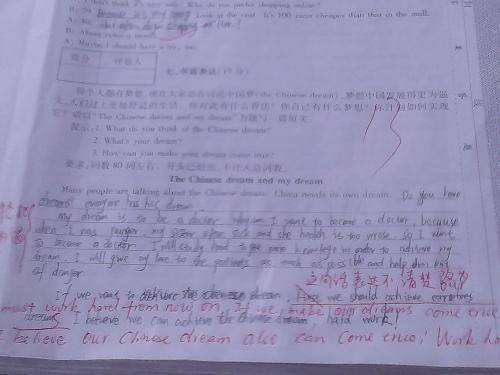 B: Because it's very easy. Look at the coat. It's 100 yuan cheaper than that in the mall.
B: About twice a month.
A: Maybe I should have a try, too.
得分 评卷人
七、书面表达(15分)
每个人都有梦想,现在大家都在讨论中国梦(the Chinese dream),梦想中国发展得更为强
大,人们过上更加舒适的生活。你对此有什么看法?你自己有什么梦想?你计划如何实现
它?请以"The Chinese dream and my dream"为题写一篇短文。
提示:1. What do you think of the Chinese dream?
2. What's your dream?
3. How can you make your dream come true?
要求:词数80词左右。开头已给出,不计入总词数。
13
The Chinese dream and my dream
Many people are talking about the Chinese dream. China needs its own dream. Do you have
dream? has his dream
my dream is to be a doctor. I want to become a doctor, because
when I was younger, my sister often sick and the health is too worse. So I want
to become a doctor. I will study hard to get more knowledge in order to achieve my
dream. I will give my love to the patients as much as possible and help them out
of danger
这句话表达不清楚
If we want to achieve the Chinese dream, we should achieve ourselves
must work hard from now on, If we make our dreams come true
dreams I believe we can achieve the Chinese dream, hard work!
I believe our Chinese dream also can come true! Work ha